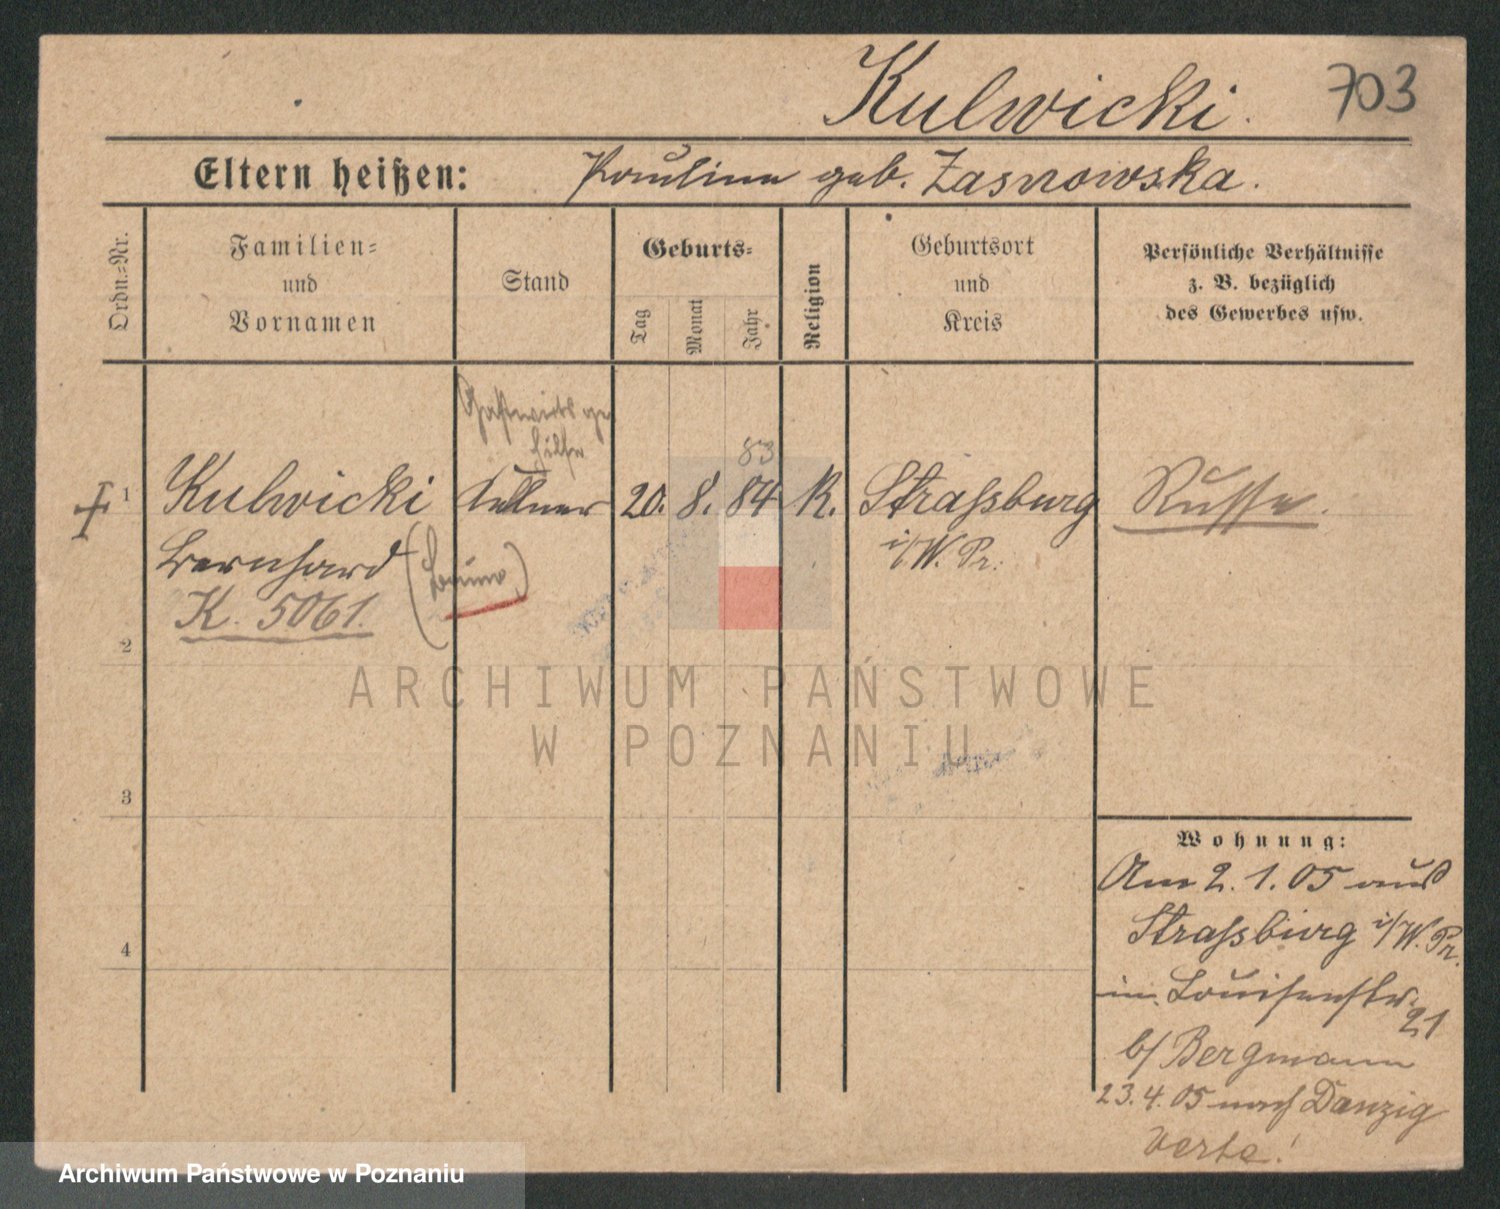 Kulwicki.
703
Eltern heißen: Paulina geb. Zasnowska.
Ordn.-Nr.
Familien-
und
Vornamen
Stand
Geburts-
Tag
Monat
Jahr
Religion
Geburtsort
und
Kreis
Persönliche Verhältnisse
z. B. bezüglich
des Gewerbes usw.
Gastwirtsge
hilfe
83
1 Kulwicki Kellner 20. 8. 84 K. Strassburg Russe.
Bernhard (Bruno) i/W. Pr.
K. 5061.
2
ARCHIWUM PAŃSTWOWE
W POZNANIU
3
4
Wohnung:
Am 2. 1. 05 aus
Strassburg i/W. Pr.
in Louisenstr.
21
b/ Bergmann
23. 4. 05 nach Danzig
Verte!
Archiwum Państwowe w Poznaniu